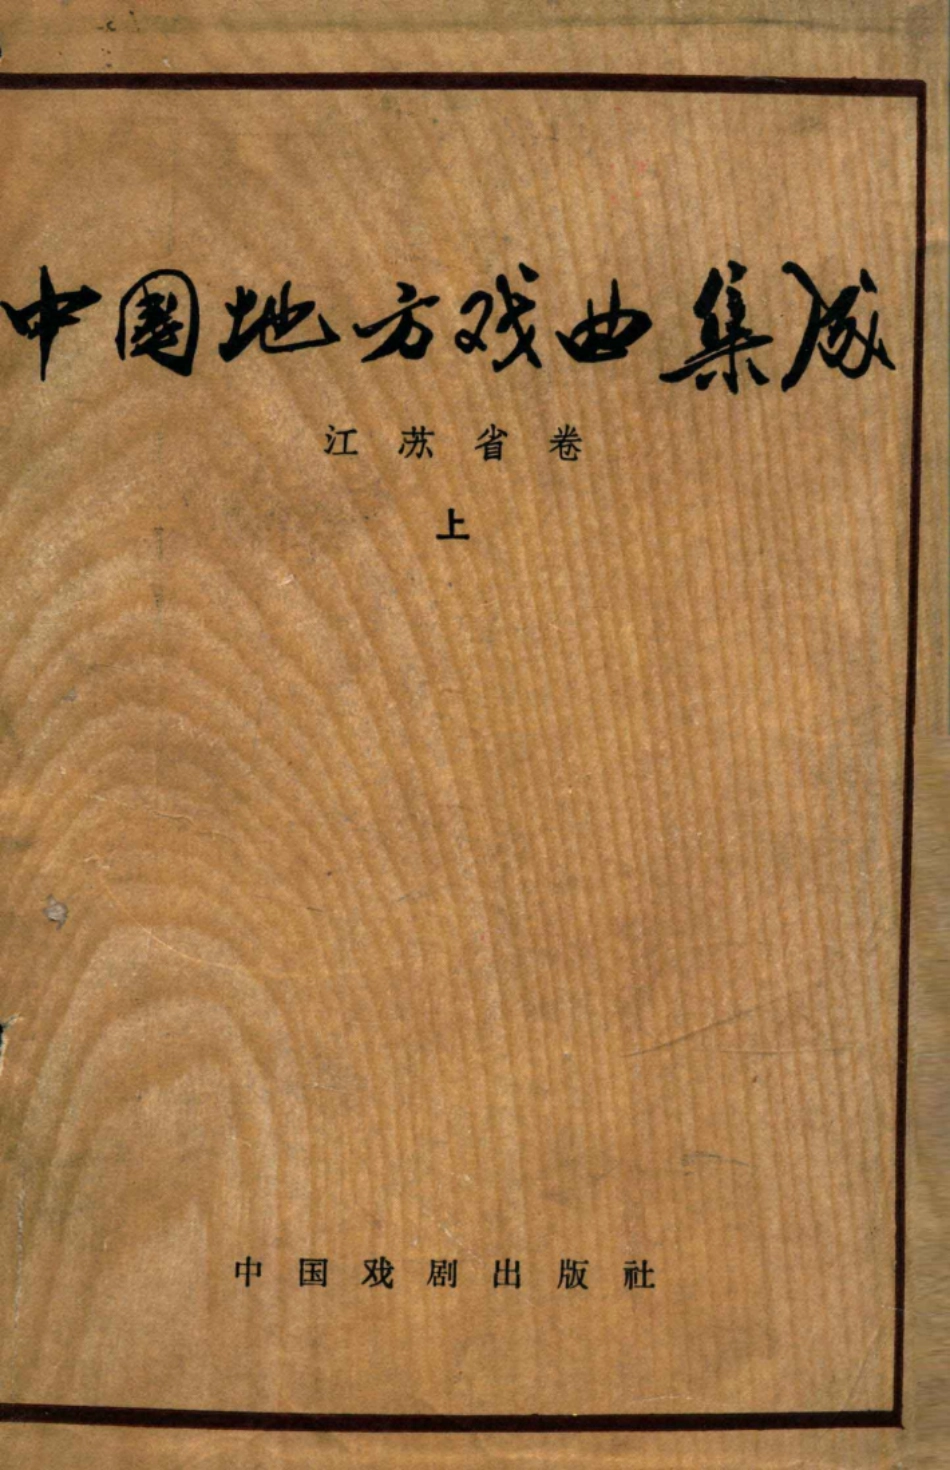 中国地方戏曲集成
江苏省卷
上
中国戏剧出版社